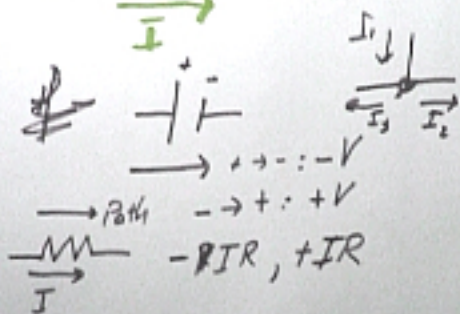 I
+ -
I₁
I₃ I₂
+ → - : - V
Path - → + : + V
- IR , + IR
I